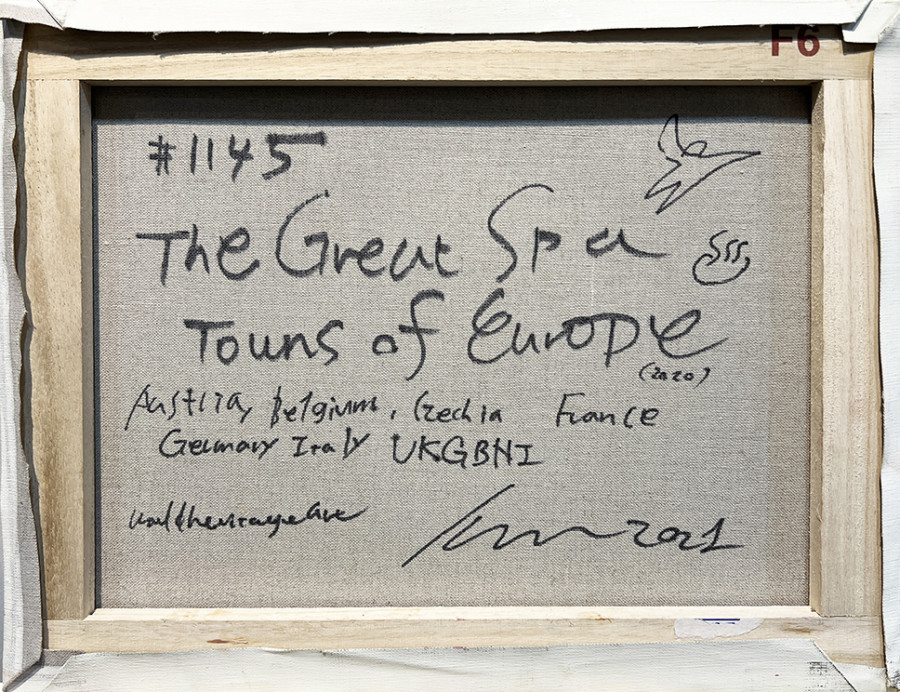 F6
#1145
The Great Spa
Towns of Europe
(2020)
Austria, Belgium, Czechia France
Germany Italy UKGBNI
worldheritage
2021